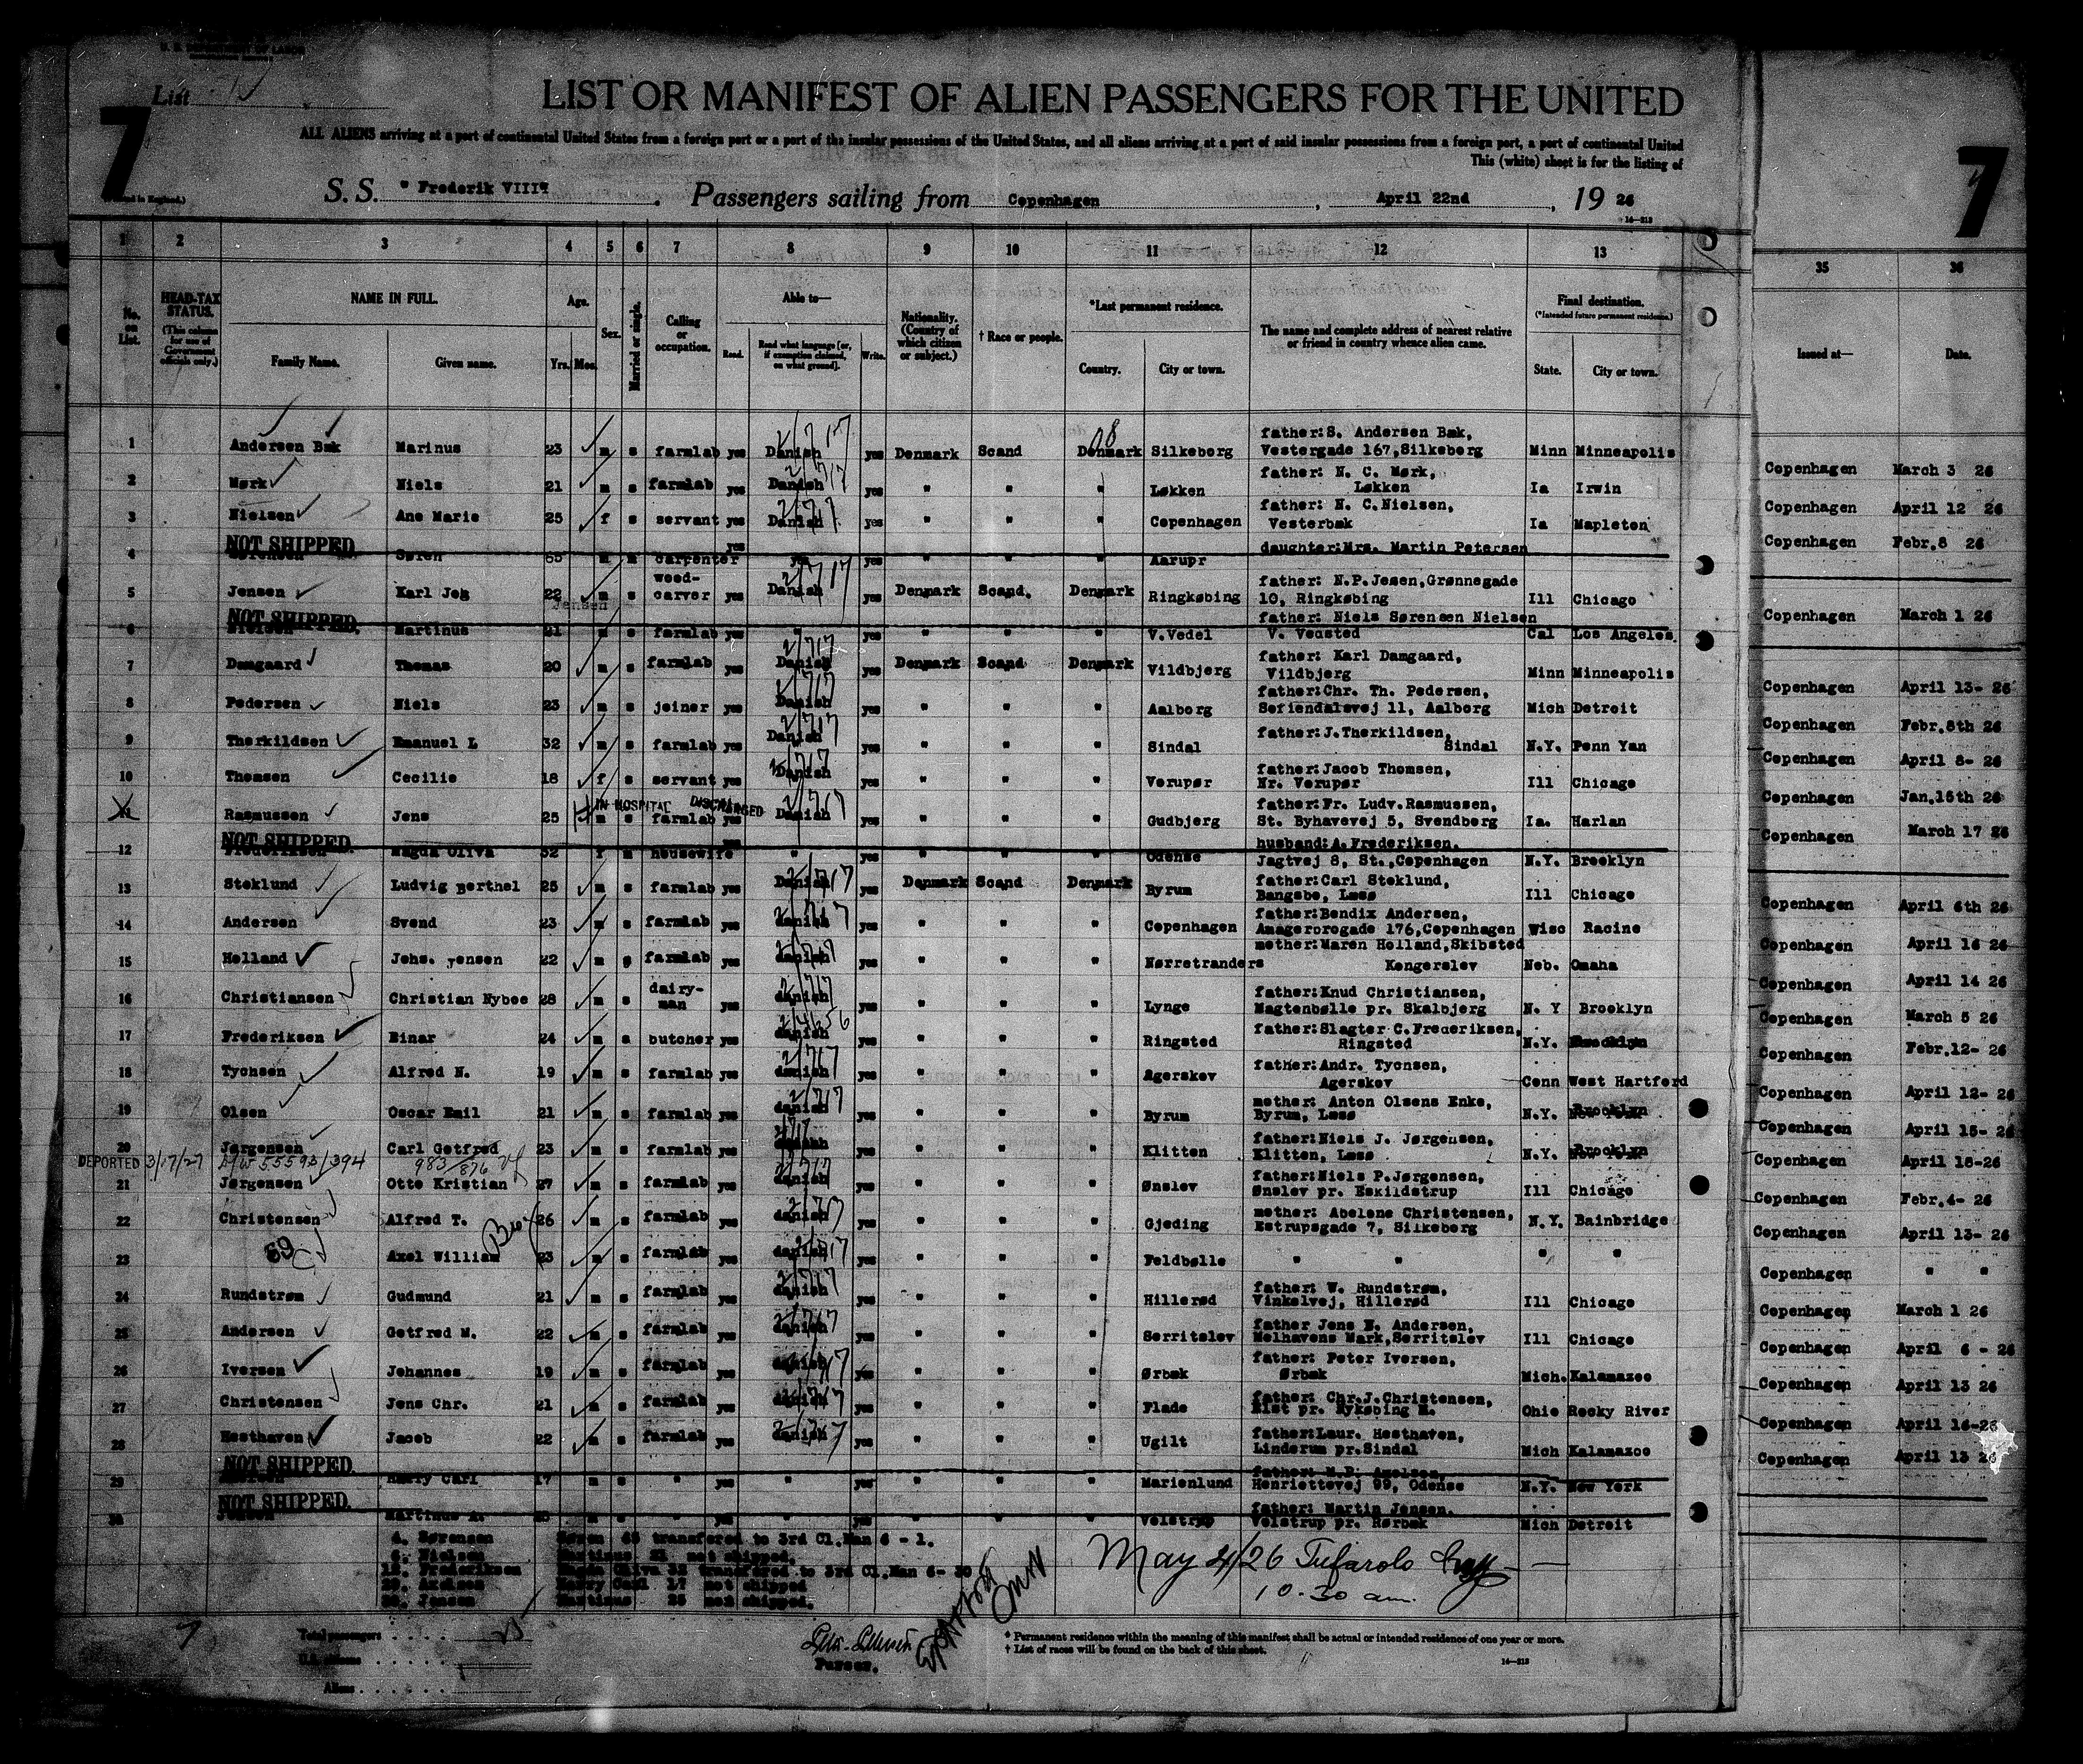 U. S. DEPARTMENT OF LABOR
List 1
7
LIST OR MANIFEST OF ALIEN PASSENGERS FOR THE UNITED
ALL ALIENS arriving at a port of continental United States from a foreign port or a port of the insular possessions of the United States, and all aliens arriving at a port of said insular possessions from a foreign port, a port of continental United
This (white) sheet is for the listing of
7
S. S. " Frederik VIII" . Passengers sailing from Copenhagen , April 22nd , 19 26
14—213
1 2 3 4 5 6 7 8 9 10 11 12 13 35 36
No. on List. HEAD-TAX STATUS. (This column for use of Government officials only.) NAME IN FULL. Family Name. Given name. Age. Yrs. Mos. Sex. Married or single. Calling or occupation. Able to— Read. Read what language [or, if exemption claimed, on what ground]. Write. Nationality. (Country of which citizen or subject.) † Race or people. *Last permanent residence. Country. City or town. The name and complete address of nearest relative or friend in country whence alien came. Final destination. (*Intended future permanent residence.) State. City or town. Issued at— Date.
1 Andersen Bæk Marinus 23 m s farmlab yes Danish yes Denmark Scand Denmark Silkeborg father:S. Andersen Bæk, Vestergade 167,Silkeborg Minn Minneapolis Copenhagen March 3 26
2 Mørk Niels 21 m s farmlab yes Danish yes " " " Løkken father: N. C. Mørk, Løkken Ia Irwin Copenhagen April 12 26
3 Nielsen Ane Marie 25 f s servant yes Danish yes " " " Copenhagen father: N. C.Nielsen, Vesterbæk Ia Mapleton Copenhagen Febr.8 26
NOT SHIPPED
4 Sørensen Søren 55 m m carpenter yes yes yes " " " Aarupr daughter:Mrs. Martin Petersen
5 Jensen Karl Jeg 22 m s wood-carver yes Danish yes Denmark Scand. Denmark Ringkøbing father: N.P.Jesen,Grønnegade 10, Ringkøbing Ill Chicago Copenhagen March 1 26
Jensen
NOT SHIPPED.
6 Nielsen Martinus 21 m s farmlab yes yes " " " V.Vedel father: Niels Sørensen Nielsen V. Vedsted Cal Los Angeles.
7 Damgaard Thomas 20 m s farmlab yes Danish yes Denmark Scand Denmark Vildbjerg father: Karl Damgaard, Vildbjerg Minn Minneapolis Copenhagen April 13- 26
8 Pedersen Niels 23 m s joiner yes Danish yes " " " Aalborg father:Chr. Th. Pedersen, Sofiendalsvej 11, Aalborg Mich Detroit Copenhagen Febr.8th 26
9 Therkildsen Emanuel L 32 m s farmlab yes Danish yes " " " Sindal father:J.Therkildsen, Sindal N.Y. Penn Yan Copenhagen April 8- 26
10 Thomsen Cecilie 18 f s servant yes Danish yes " " " Vorupør father:Jacob Thomsen, Nr. Vorupør Ill Chicago Copenhagen Jan.15th 26
IN HOSPITAL DISCHARGED
11 Rasmussen Jens 25 m s farmlab yes Danish yes " " " Gudbjerg father:Fr. Ludv.Rasmussen, St. Byhavevej 5, Svendborg Ia. Harlan Copenhagen March 17 26
NOT SHIPPED.
12 Frederiksen Magda Oliva 32 f m housewife " yes " " " Odense husband:A.Frederiksen. Jagtvej 8, St.,Copenhagen N.Y. Brooklyn
13 Stoklund Ludvig Berthel 25 m s farmlab yes Danish yes Denmark Scand Denmark Byrum father:Carl Stoklund, Bangsbo, Læsø Ill Chicago Copenhagen April 6th 26
14 Andersen Svend 23 m farmlab yes danish yes " " " Copenhagen father:Bendix Andersen, Amagerbrogade 176,Copenhagen Wisc Racine Copenhagen April 16 26
15 Holland Johs. Jensen 22 m s farmlab yes danish yes " " " Nørretranders mother:Maren Holland,Skibsted Kongerslev Neb. Omaha Copenhagen April 14 26
16 Christiansen Christian Nyboe 28 m s dairy-man yes danish yes " " " Lynge father:Knud Christiansen, Magtenbølle pr. Skalbjerg N. Y Brooklyn Copenhagen March 5 26
17 Frederiksen Einar 24 m s butcher yes danish yes " " " Ringsted father:Slagter C.Frederiksen, Ringsted N.Y. Brooklyn Copenhagen Febr.12- 26
18 Tychsen Alfred N. 19 m s farmlab yes danish yes " " " Agerskov father:Andr. Tychsen, Agerskov Conn West Hartford Copenhagen April 12- 26
19 Olsen Oscar Emil 21 m s farmlab yes danish yes " " " Byrum mother: Anton Olsens Enke, Byrum, Læsø N.Y. Brooklyn Copenhagen April 15- 26
20 Jørgensen Carl Gotfred 23 m s farmlab yes danish yes " " " Klitten father:Niels J. Jørgensen, Klitten, Læsø N.Y. Brooklyn Copenhagen April 15-26
DEPORTED 3/17/27 55593/394 983/876
21 Jørgensen Otto Kristian 27 m s farmlab yes danish yes " " " Ønslev father:Niels P.Jørgensen, Ønslev pr. Eskildstrup Ill Chicago Copenhagen Febr.4- 26
22 Christensen Alfred T. 26 m s farmlab yes danish yes " " " Gjeding mother: Abelone Christensen, Estrupsgade 7, Silkeborg N.Y. Bainbridge Copenhagen April 13- 26
23 Axel William 23 m s farmlab yes danish yes " " " Feldbølle " " " " Copenhagen " "
24 Rundstrøm Gudmund 21 m s farmlab yes danish yes " " " Hillerød father: W. Rundstrøm, Vinkelvej, Hillerød Ill Chicago Copenhagen March 1 26
25 Andersen Gotfred M. 22 m s farmlab yes danish yes " " " Serritslev father Jens N. Andersen, Melhavens Mark,Serritslev Ill Chicago Copenhagen April 6 - 26
26 Iversen Johannes 19 m s farmlab yes danish yes " " " Ørbæk father: Peter Iversen, Ørbæk Mich. Kalamazoo Copenhagen April 13 26
27 Christensen Jens Chr. 21 m s farmlab yes danish yes " " " Flade father: Chr.J.Christensen, pr. Nykøbing M. Ohio Rocky River Copenhagen April 14-26
28 Hesthaven Jacob 22 m s farmlab yes danish yes " " " Ugilt father:Laur. Hesthaven, Linderum pr.Sindal Mich Kalamazoo Copenhagen April 13 26
NOT SHIPPED.
29 Harry Carl 17 m s " yes " yes " " " Marienlund Henriettevej 99, Odense N.Y. New York
NOT SHIPPED.
30 Jensen Martinus A. s " yes " yes " " " Velstrup father: Martin Jensen. Velstrup pr. Rørbæk Mich Detroit
4. Sørensen Søren transfered to 3rd Cl.Man 6 - 1.
6. Nielsen Martinus 21 not shipped.
12. Frederiksen Magda Oliva 32 transfered to 3rd Cl.Man 6- 30
29. Axelsen Harry Carl 17 not shipped
30. Jensen Martinus 25 not shipped.
May 4/26
10.30 am.
Total passengers 25
U.S. citizens
Aliens
Purser.
* Permanent residence within the meaning of this manifest shall be actual or intended residence of one year or more.
† List of races will be found on the back of this sheet.
14—213